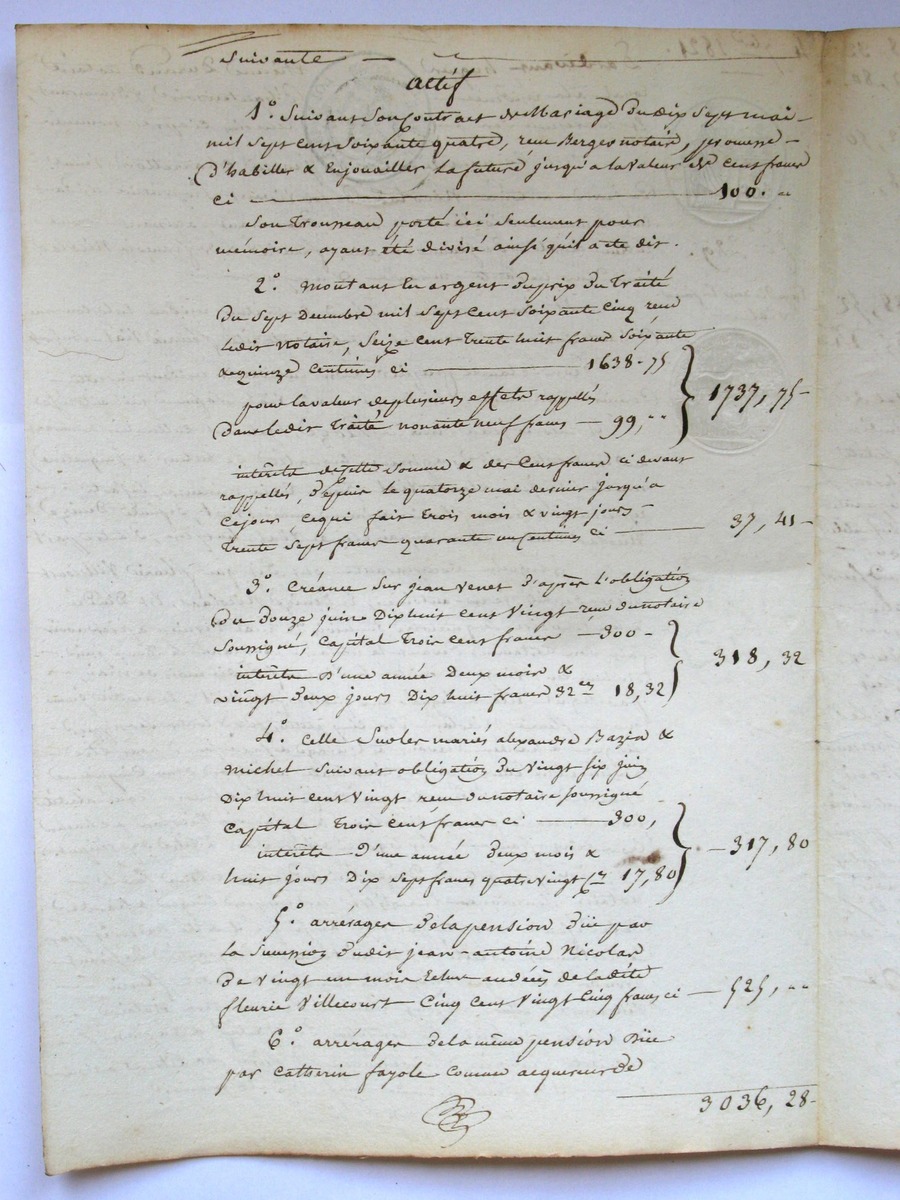 suivante
actif
1° Suivant son Contract de Mariage du dix sept mai
mil sept cent soixante quatre, reçu Berger notaire, promesse
d'habiller & Enjouailler la future jusqu'a la valeur de cent francs
ci 100. "
Son trousseau porté ici seulement pour
mémoire, ayant été divisé ainsi qu'il a été dit.
2° montant En argent du prix du traité
du sept Decembre mil sept cent soixante cinq reçu
ledit notaire, seize cent trente huit francs soixante
& quinze centimes ci 1638-75
1737,75
pour la valeur de plusieurs effets rappellés
dans ledit traité nonante neuf francs 99, "
interêts de cette somme & des cent francs ci devant
rappellés, depuis le quatorze mai dernier jusqu'a
ce jour, ce qui fait trois mois & vingt jours
trente sept francs quarante un centimes ci 37,41
3° Créance sur jean Venet d'après l'obligation
du douze juin Dix huit cent vingt reçue du notaire
soussigné, Capital trois cent francs 300
318,32
interêts d'une année deux mois &
vingt deux jours Dix huit francs 32 ces 18,32
4° celle sur les mariés alexandre Bazin &
michel suivant obligation du vingt six juin
Dix huit cent vingt reçue du notaire soussigné
Capital trois cent francs ci 300,
317,80
interêts d'une année deux mois &
huit jours Dix sept francs quatre vingt ces 17,80
5° arrérages de la pension düe par
la succession dudit jean-antoine Nicolas
de vingt un mois Echus au décès de ladite
fleurie Villecourt cinq cent vingt cinq francs ci 525, "
6° arrérages de la même pension düe
par Catherin fayole comme acquereur de
3036,28